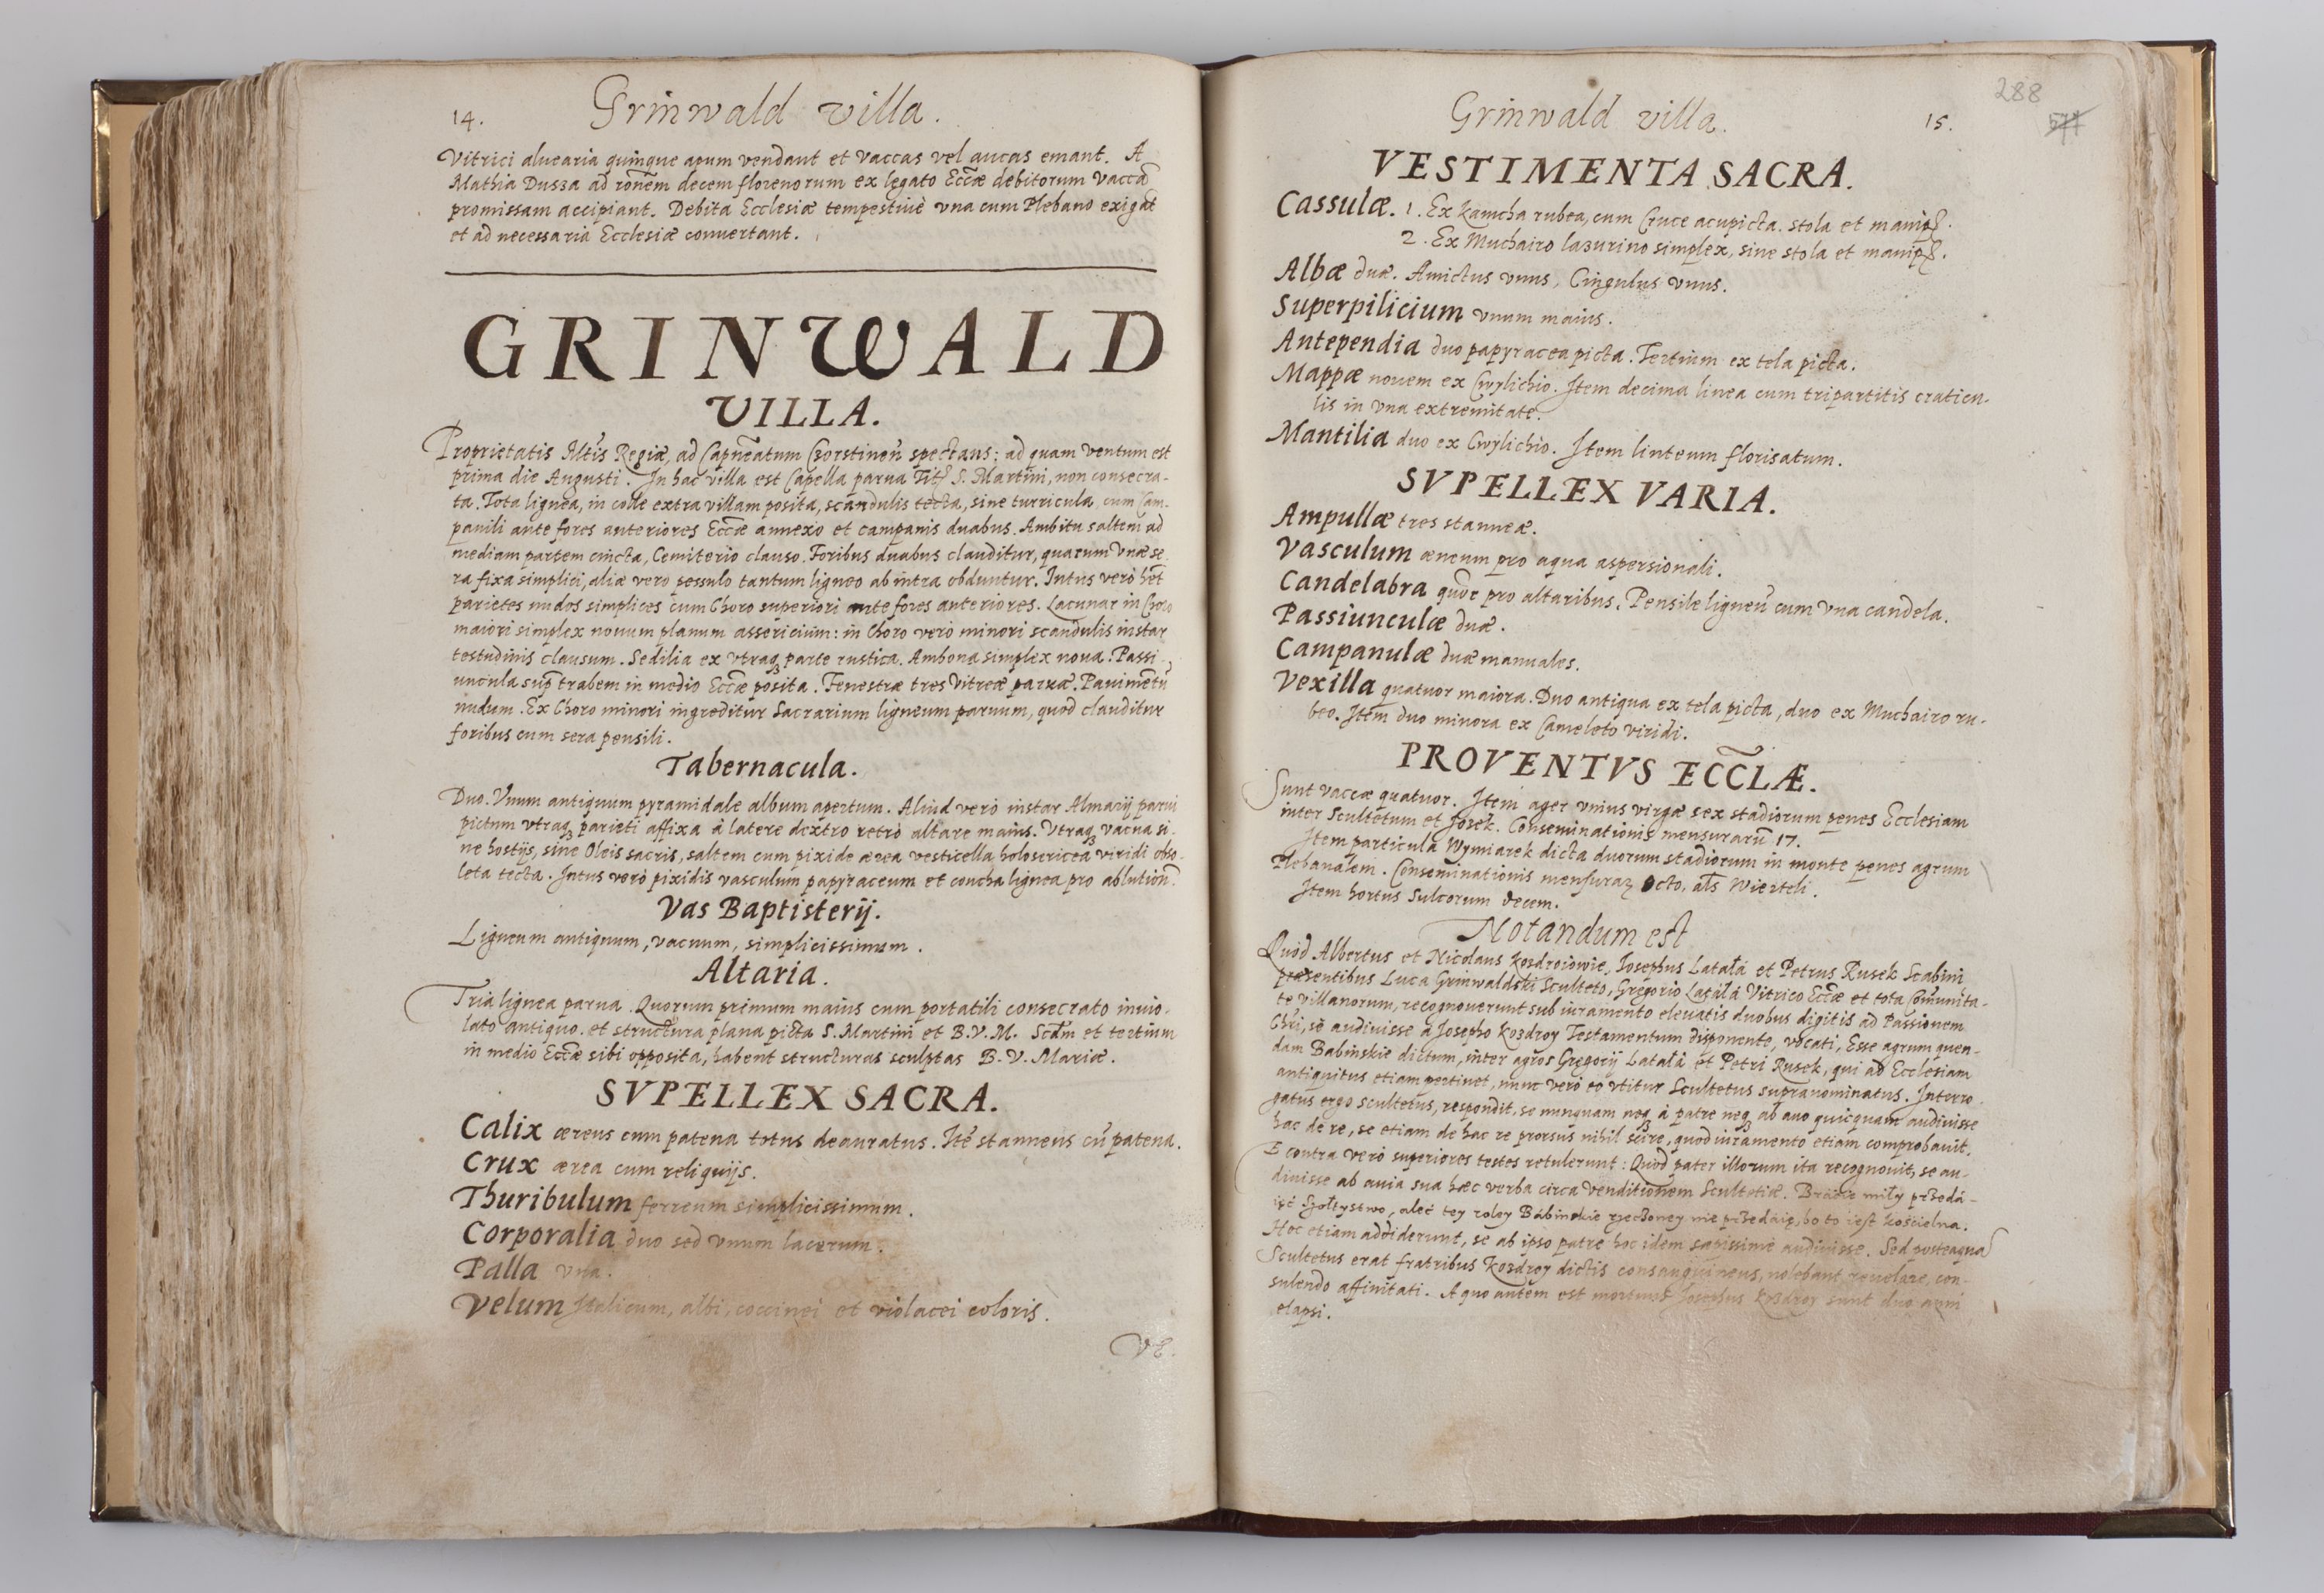 14.
Grinwald villa.
Vitrici aluearia quinque apum vendant et vaccas vel aucas emant. A
Mathia Dusza ad ronem decem florenorum ex legato Eccæ debitorum vaccā
promissam accipiant. Debita Ecclesiæ tempestiuè vna cum Plebano exigāt
et ad necessaria Ecclesiæ conuertant.
GRINWALD
VILLA.
Proprietatis Mtis Regiæ, ad Capneatum Czorstinen spectans: ad quam ventum est
prima die Augusti. In hac villa est Capella parua Tit S. Martini, non consecra-
ta. Tota lignea, in colle extra villam posita, scandulis tecta, sine turricula, cum Cam-
panili ante fores anteriores Eccæ annexo et campanis duabus. Ambitu saltem ad
mediam partem cincta, Cemiterio clauso. Foribus duabus clauditur, quarum vnæ se-
ra fixa simplici, aliæ vero pessulo tantum ligneo ab intra obduntur. Intus verò het
parietes nudos simplices cum Choro superiori ante fores anteriores. Lacunar in Choro
maiori simplex nouum planum assericium: in Choro verò minori scandulis instar
testudinis clausum. Sedilia ex vtraq parte rustica. Ambona simplex noua. Passi-
uncula sup trabem in medio Eccæ posita. Fenestræ tres vitreæ paruæ. Pauimētū
nudum. Ex Choro minori ingreditur Sacrarium ligneum paruum, quod clauditur
foribus cum sera pensili.
Tabernacula.
Duo. Vnum antiquum pyramidale album apertum. Aliud verò instar Almarij parui
pictum vtraq parieti affixa à latere dextro retrò altare maius. Vtraq vacua si-
ne hostijs, sine Oleis sacris, saltem cum pixide ærea vesticella holosericea viridi obso-
leta tecta. Intus verò pixidis vasculum papyraceum et concha lignea pro ablution.
Vas Baptisterij.
Ligneum antiquum, vacuum, simplicissimum.
Altaria.
Tria lignea parua. Quorum primum maius cum portatili consecrato inuio-
lato antiquo. et structura plana picta S. Martini et B. V. M. Scdm et tertium
in medio Eccæ sibi opposita, habent structuras sculptas B. V. Mariæ.
SVPELLEX SACRA.
Calix æreus cum patena totus deauratus. Itē stanneus cū patena.
Crux ærea cum reliquijs.
Thuribulum ferreum simplicissimum.
Corporalia duo sed vnum lacerum.
Palla vna.
Velum Italicum, albi, coccinei et violacei coloris.
VE.
Grinwald villa.
15.
288
577
VESTIMENTA SACRA.
Cassulæ. 1. Ex kamcha rubea, cum Cruce acupicta. stola et manip.
2. Ex Muchairo lazurino simplex, sine stola et manip.
Albæ duæ. Amictus vnus, Cingulus vnus.
Superpilicium vnum maius.
Antependia duo papyracea picta. Tertium ex tela picta.
Mappæ nouem ex Cwylichio. Item decima linea cum tripartitis craticu-
lis in vna extremitate.
Mantilia duo ex Cwylichio. Item linteum florisatum.
SVPELLEX VARIA.
Ampullæ tres stanneæ.
Vasculum æneum pro aqua aspersionali.
Candelabra quōr pro altaribus. Pensile ligneū cum vna candela.
Passiunculæ duæ.
Campanulæ duæ manuales.
Vexilla quatuor maiora. Duo antiqua ex tela picta, duo ex Muchairo ru-
beo. Item duo minora ex Cameloto viridi.
PROVENTVS ECCLÆ.
Sunt vaccæ quatuor. Item ager vnius virgæ sex stadiorum penes Ecclesiam
inter Scultetum et Josek. Conseminationis mensurarū 17.
Item particula Wymiarek dicta duorum stadiorum in monte penes agrum
Plebanalem. Conseminationis mensuraz octo, als Wierteli.
Item hortus Sulcorum decem.
Notandum est
Quod Albertus et Nicolaus Kozdroiowie, Josephus Latała et Petrus Rusek Scabini
præsentibus Luca Grinwaldski Sculteto, Gregorio Latała Vitrico Eccæ et tota Comunita-
te villanorum, recognouerunt sub iuramento eleuatis duobus digitis ad Passionem
Chri, se audiuisse à Josepho Kozdroy Testamentum disponente, vocati, Esse agrum quen-
dam Babinskie dictum, inter agros Gregorij Latała et Petri Rusek, qui ad Ecclesiam
antiquitus etiam pertinet, nunc verò eo vtitur Scultetus supranominatus. Interro-
gatus ergo scultetus, respondit, se nunquam neq à patre neq ab auo quicquam audiuisse
hac de re, se etiam de hac re prorsus nihil scire, quod iuramento etiam comprobauit.
E contra verò superiores testes retulerunt: Quod pater illorum ita recognouit, se au-
diuisse ab auia sua hæc verba circa venditionem Scultetiæ. Bracie miły przeda-
ięć Szołtystwo, aleć tey roley Babinskie rzeczoney nie przedaię, bo to iest kościelna.
Hoc etiam addiderunt, se ab ipso patre hoc idem sæpissimè audiuisse. Sed posteaquā
Scultetus erat fratribus Kozdroy dictis consanguineus, nolebant reuelare, con-
sulendo affinitati. A quo autem est mortuus Josephus Kozdroy sunt duo anni
elapsi.